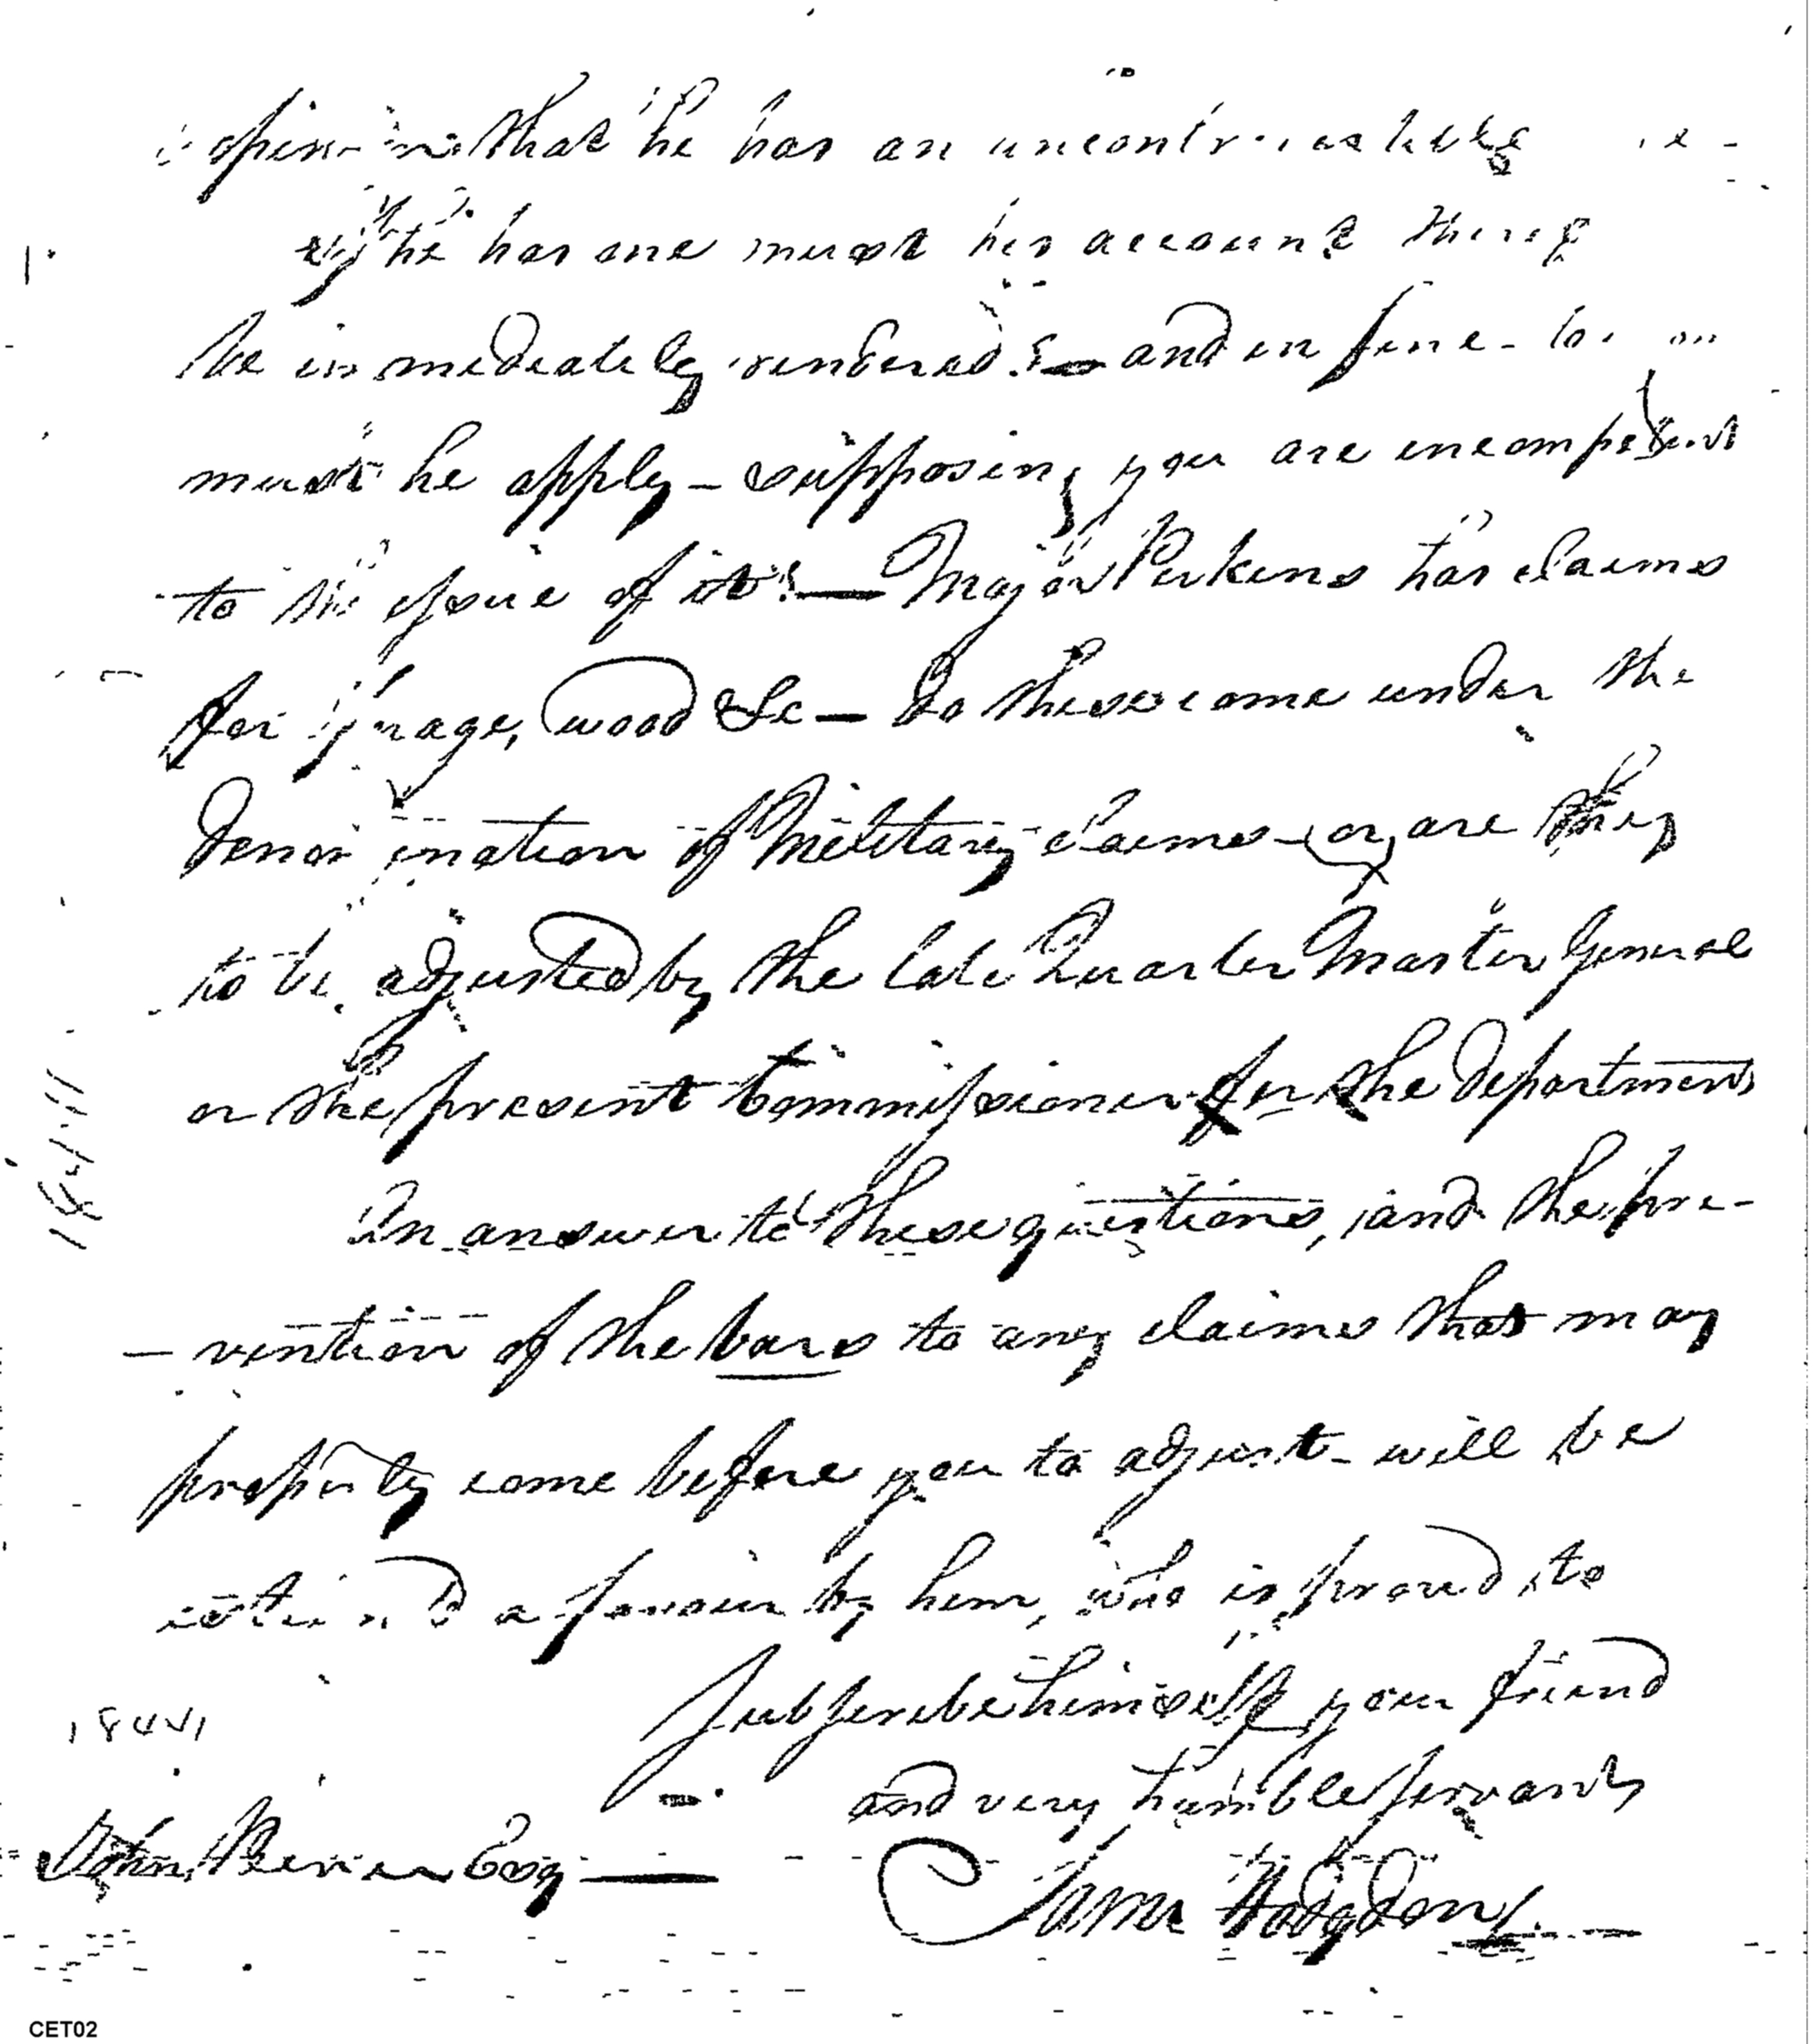 opinion that he has an uncontrovertible
if he has one must his account thereof
be immediately rendered? — and in fine - to
must he apply — supposing you are incompetent
to the issue of it? — Major Perkins has claims
for forage, wood &c — do these come under the
denomination of Military claims — or are they
to be adjusted by the late Quarter Master General
or the present Commissioner for the department
In answer to these questions, and the pre-
- vention of the bars to any claims that may
properly come before you to adjust - will be
a favour by him, who is proud to
Subscribe himself your friend
and very humble Servant
John Pierce Esq —
Saml Hodgdon
18441
18441
CET02